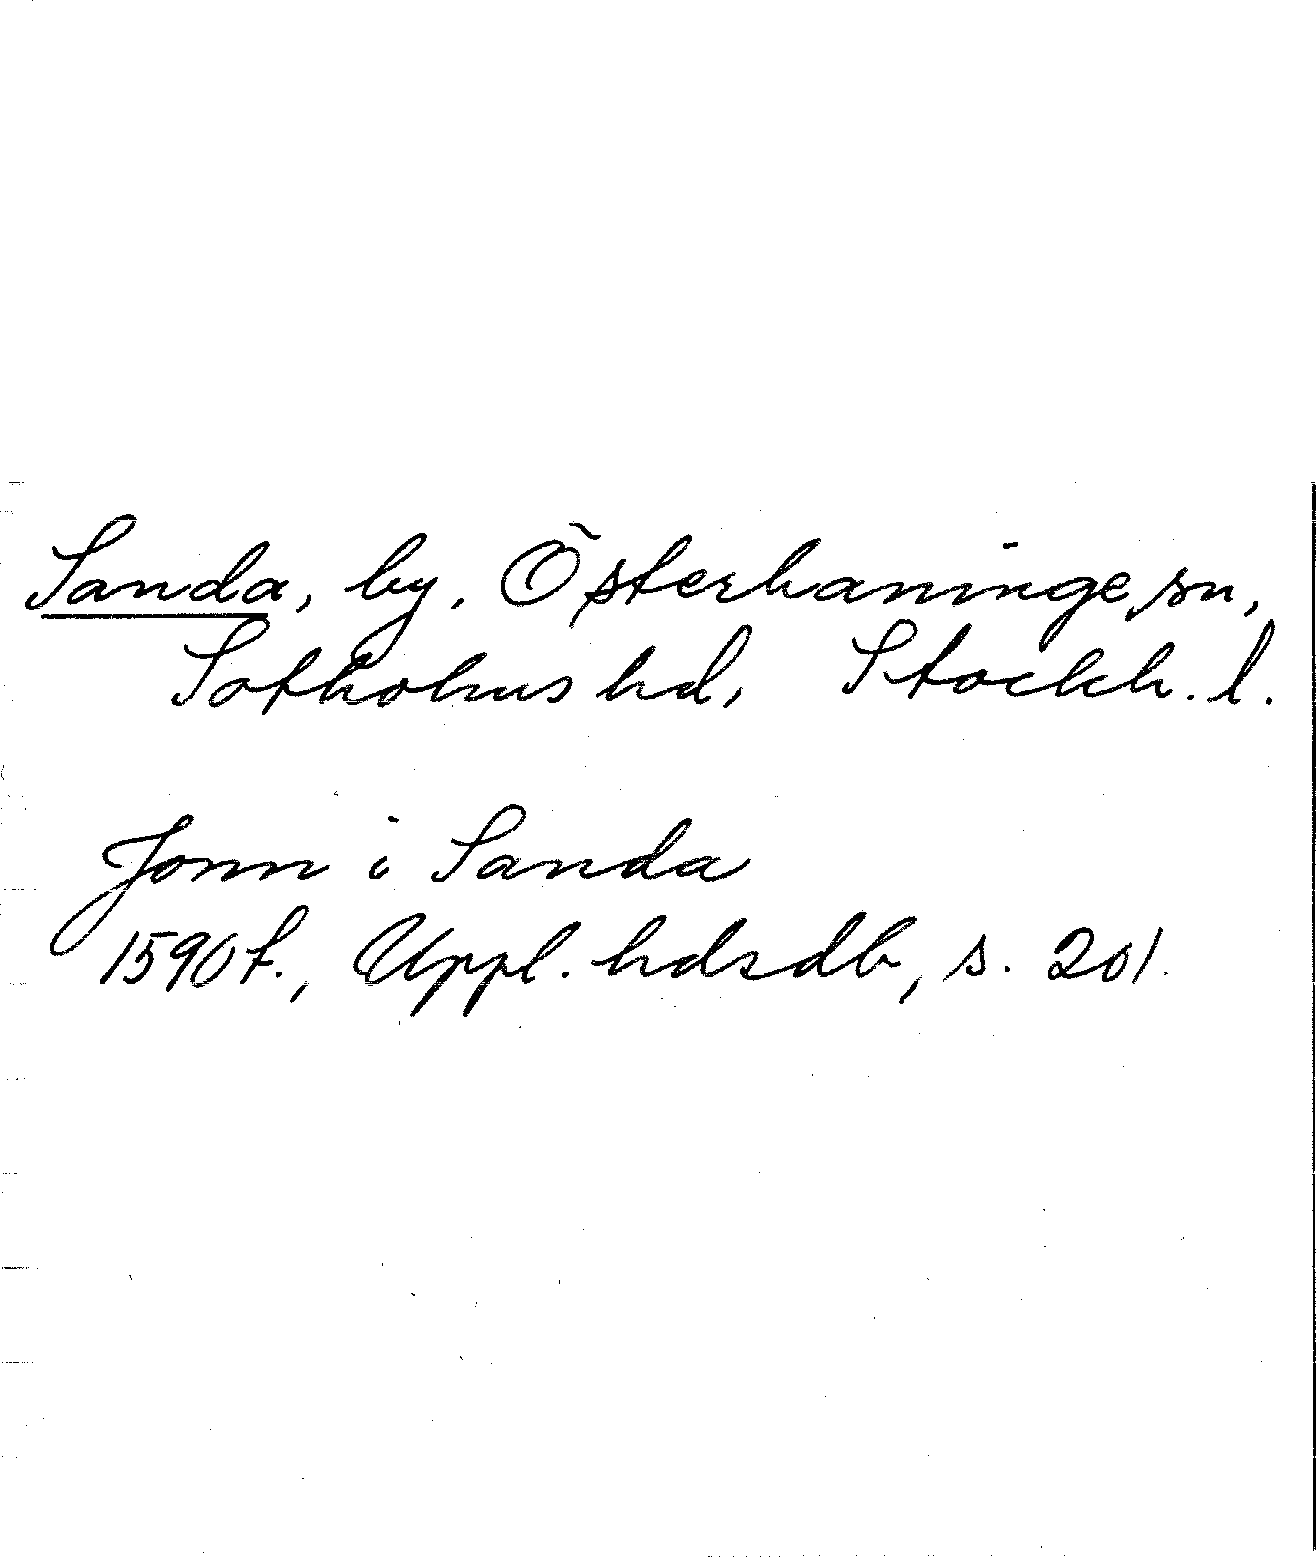 Sanda, by, Österhaninge sn,
Sotholms hd, Stockh. l.
Jonn i Sanda
1590 t., Uppl. hdsdb, s. 201.